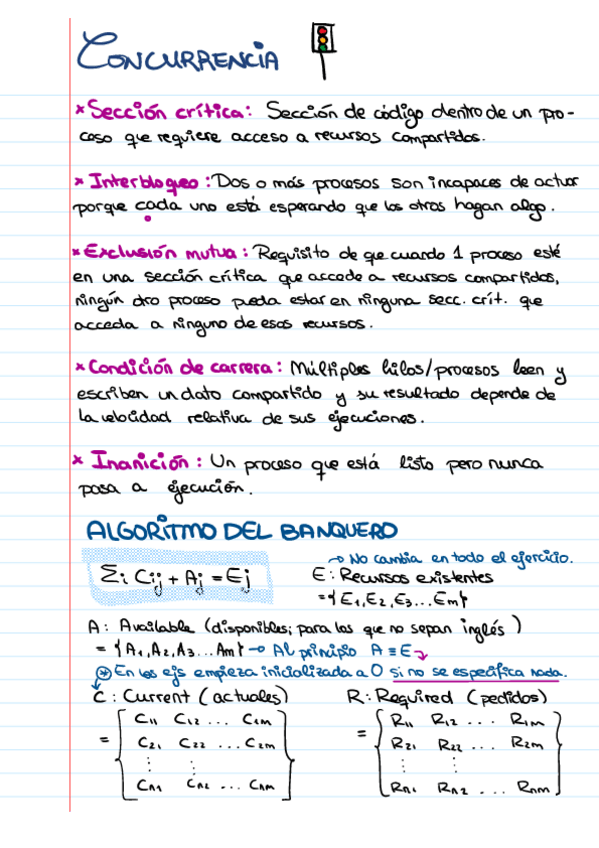 CONCURRENCIA
* Sección crítica: Sección de código dentro de un pro-
ceso que requiere acceso a recursos compartidos.
* Interbloqueo: Dos o más procesos son incapaces de actuar
porque cada uno está esperando que los otros hagan algo.
* Exclusión mutua: Requisito de que cuando 1 proceso esté
en una sección crítica que accede a recursos compartidos,
ningún otro proceso pueda estar en ninguna secc. crít. que
acceda a ninguno de esos recursos.
* Condición de carrera: Múltiples hilos/procesos leen y
escriben un dato compartido y su resultado depende de
la velocidad relativa de sus ejecuciones.
* Inanición: Un proceso que está listo pero nunca
pasa a ejecución.
ALGORITMO DEL BANQUERO
→ No cambia en todo el ejercicio.
Σi Cij + Aj = Ej
E: Recursos existentes
= {E1, E2, E3 ... Em}
A: Available (disponibles; para los que no sepan inglés)
= {A1, A2, A3 ... Am} → Al principio A ≡ E
* En los ejs empieza inicializada a 0 si no se especifica nada.
C: Current (actuales) R: Required (pedidos)
C11 C12 ... C1m R11 R12 ... R1m
= C21 C22 ... C2m = R21 R22 ... R2m
⋮ ⋮ ⋮ ⋮
Cn1 Cn2 ... Cnm Rn1 Rn2 ... Rnm